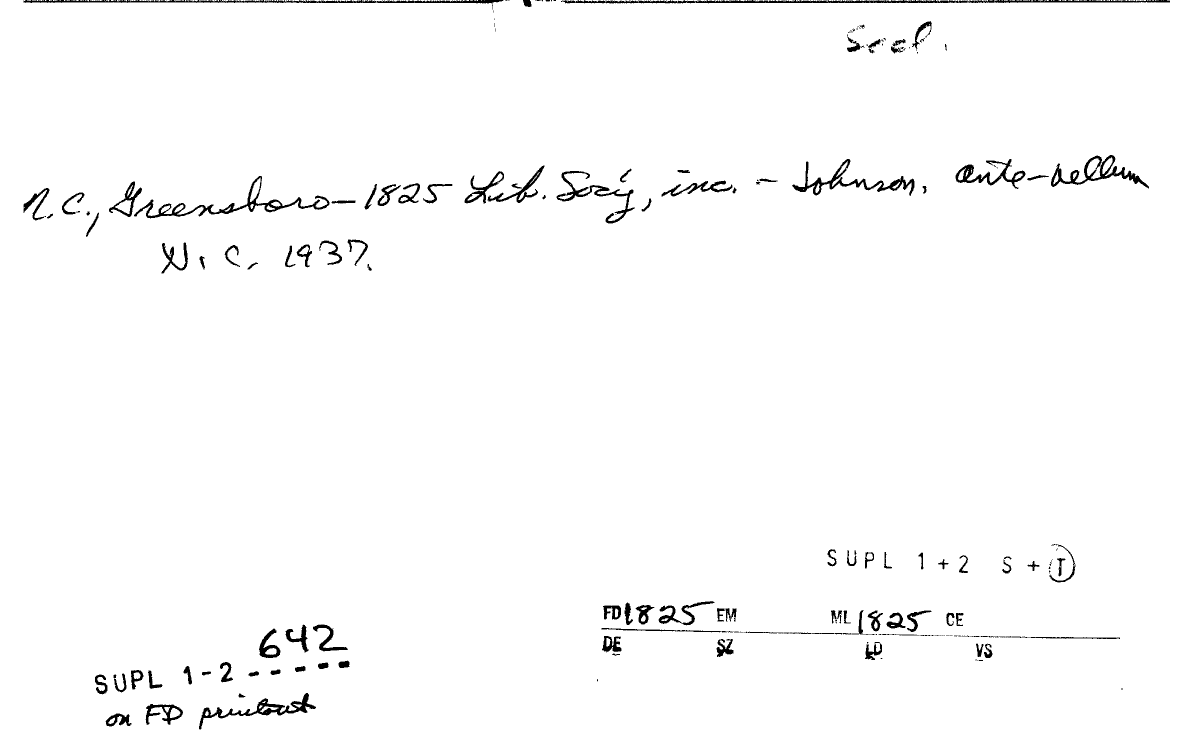 Socl.
N.C., Greensboro-1825 Lib. Soc'y, inc. - Johnson. ante-bellum
N.C. 1937.
SUPL 1+2 S + T
FD 1825 EM ML 1825 CE
DE SZ LD VS
642
SUPL 1-2 -----
on FD printout